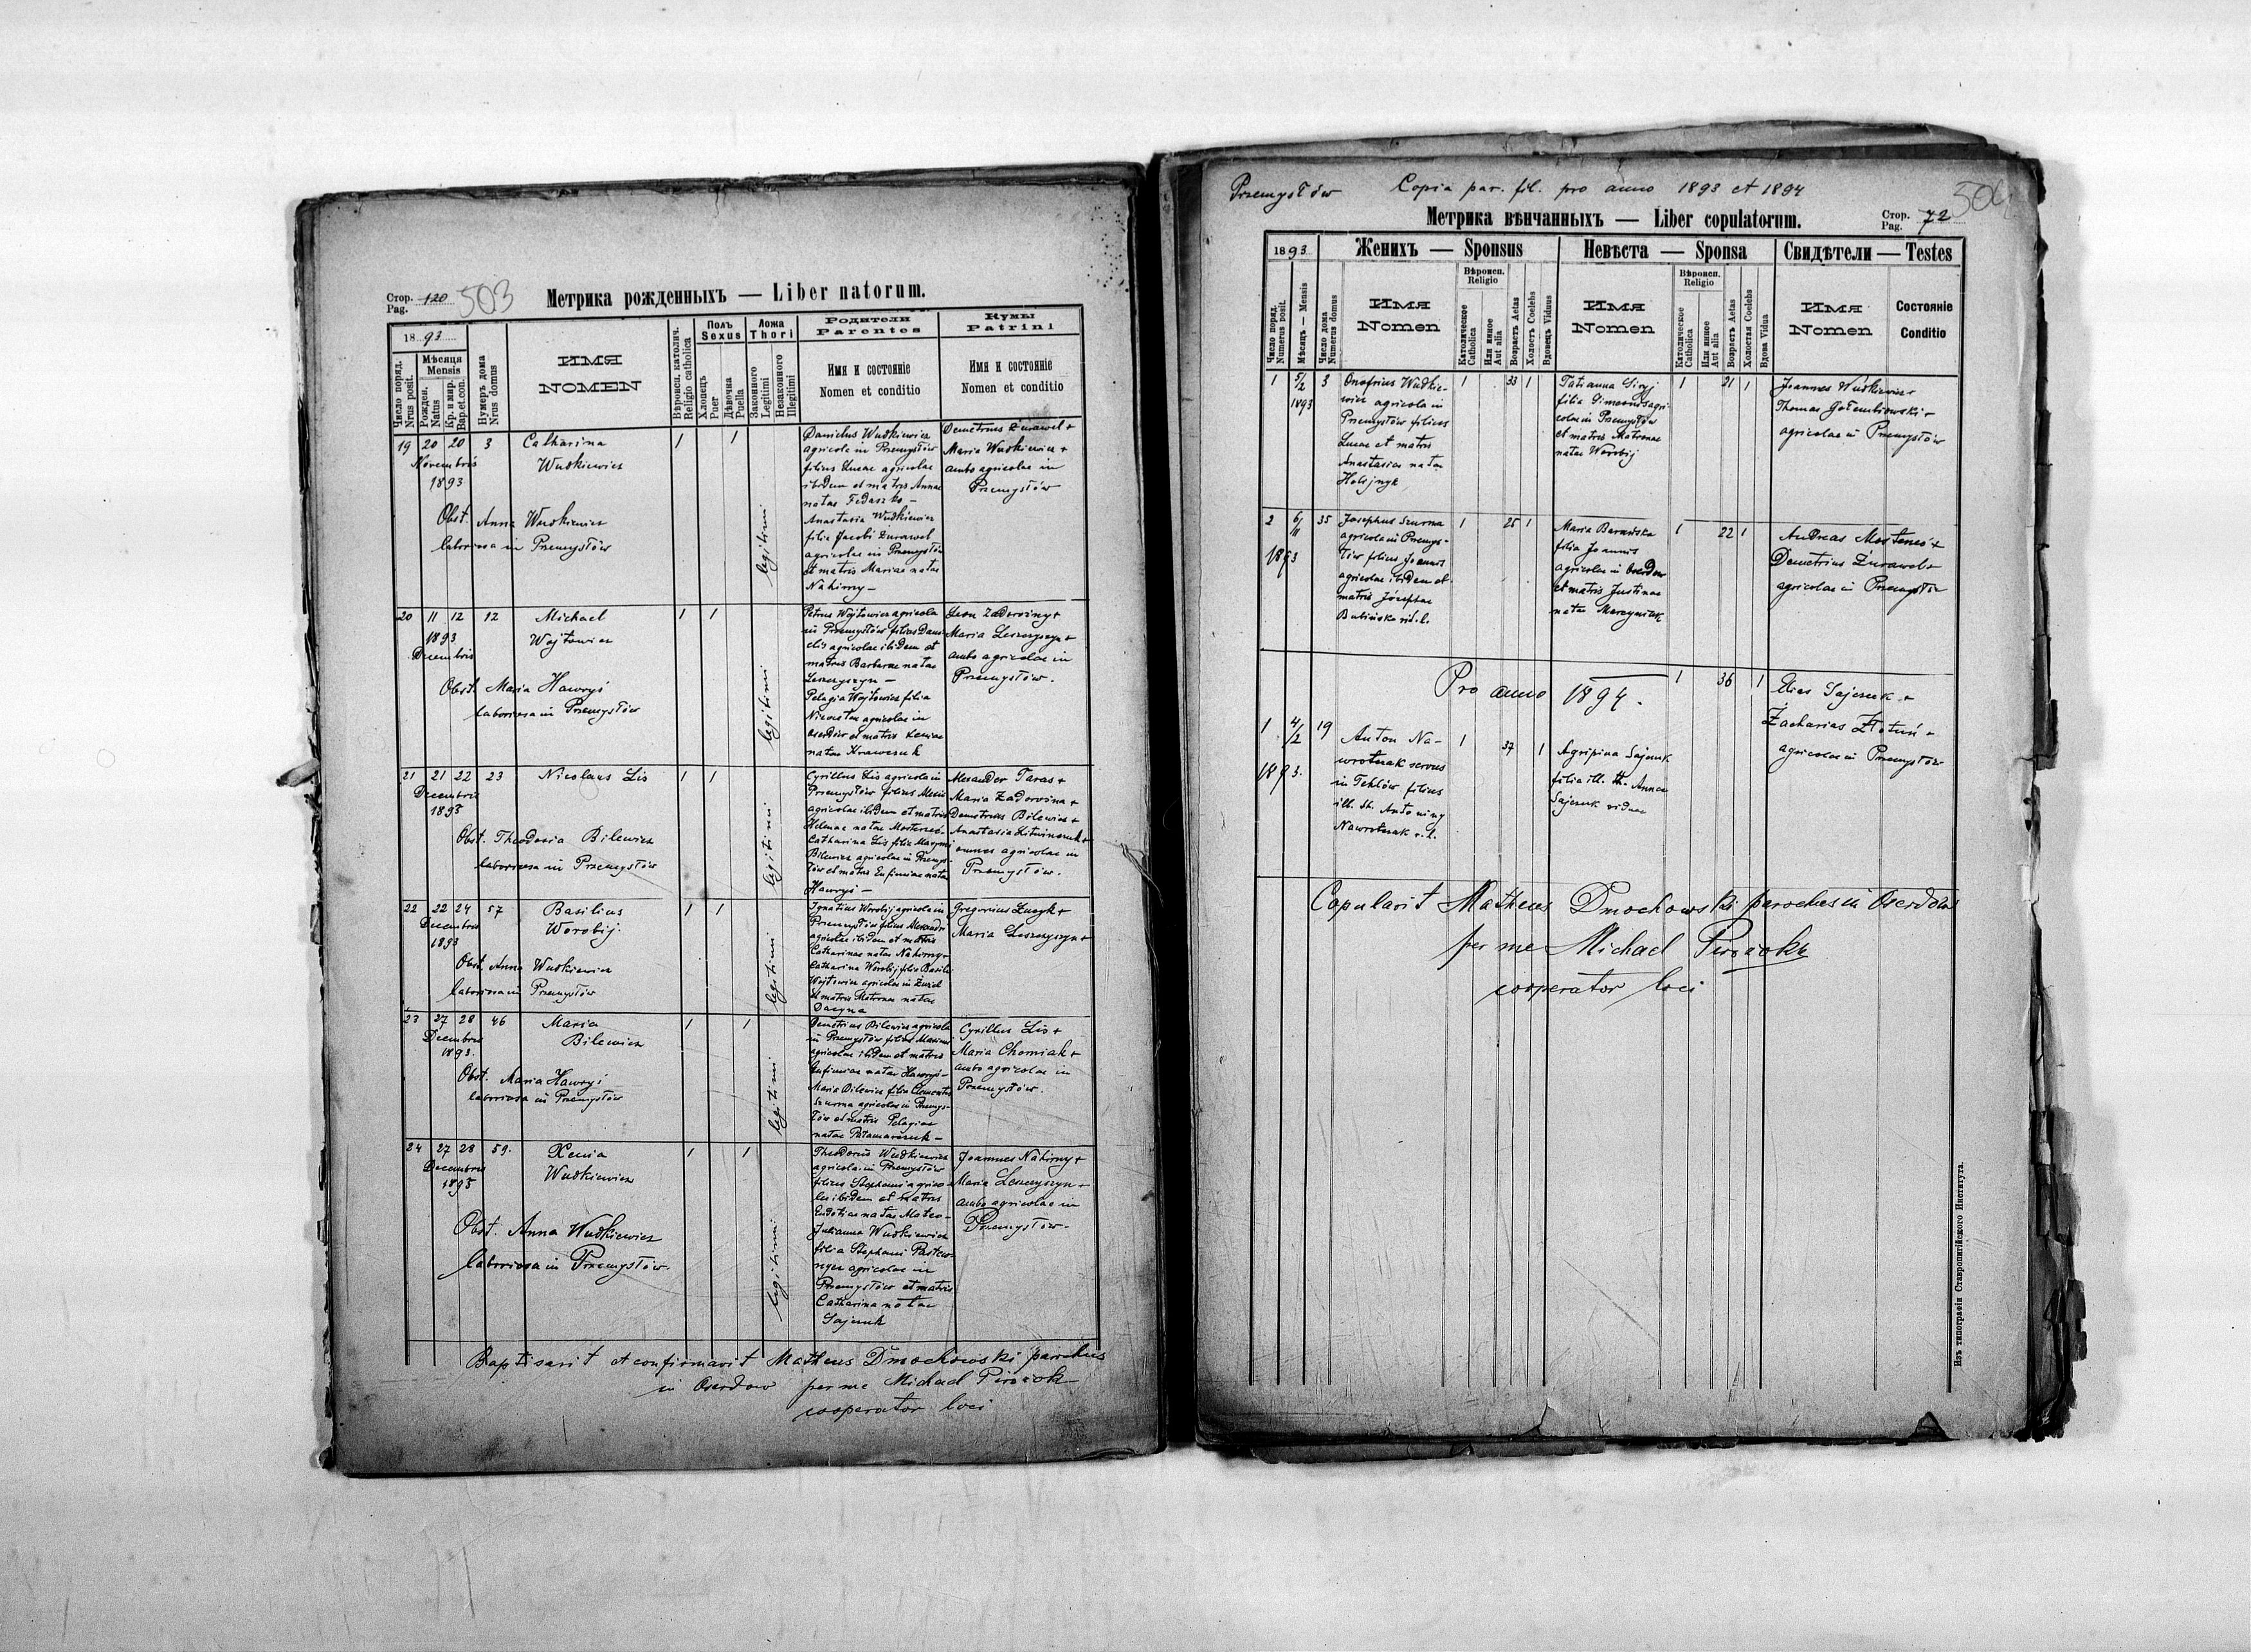 Стор. 120 503
Pag.
Метрика рожденныхъ — Liber natorum.
1893
Число поряд.
Nrus posit.
Мѣсяця
Mensis
Рожден.
Natus
Кр. и мир.
Bap. et con.
Нумеръ дома
Nrus domus
ИМЯ
NOMEN
Вѣроисп. католич.
Religio catholica
Полъ
Sexus
Хлопецъ
Puer
Дѣвочка
Puella
Ложа
Thori
Законного
Legitimi
Незаконного
Illegitimi
Родители
Parentes
Имя и состояніе
Nomen et conditio
Кумы
Patrini
Имя и состояніе
Nomen et conditio
19 20 20 3
Novembris
1893
Catharina
Wudkiewicz
1 1
legitimi
Obst. Anna Wudkiewicz
laboriosa in Przemysłów
Danielus Wudkiewicz
agricola in Przemysłów
filius Lucae agricolae
ibidem et matris Annae
natae Fedaszko —
Anastasia Wudkiewicz
filia Jacobi Żurawel
agricolae in Przemysłów
et matris Mariae natae
Nahirny —
Demetrius Żurawel +
Maria Wudkiewicz +
ambo agricolae in
Przemysłów
20 11 12 12
1893
Decembris
Michael
Wojtowicz
1 1
legitimi
Obst. Maria Hawryś
laboriosa in Przemysłów
Petrus Wojtowicz agricola
in Przemysłów filius Dani
elis agricolae ibidem et
matris Barbarae natae
Leszczyszyn —
Pelagia Wojtowicz filia
agricolae in
Oserdów et matris Xeniae
natae Krawczuk
Leon Zadorożny +
Maria Leszczyszyn +
ambo agricolae in
Przemysłów.
21 21 22 23
Decembris
1893
Nicolaus Lis
1 1
legitimi
Obst. Theodosia Bilewicz
laboriosa in Przemysłów
Cyrillus Lis agricola in
Przemysłów filius Alexii
agricolae ibidem et matris
Helenae natae
Catharina Lis filia Maximi
Bilewicz agricolae in Przemys-
łów et matris Eufimiae natae
Hawryś —
Alexander Taras +
Maria Zadorożna +
Demetrius Bilewicz +
Anastasia Litwinczuk +
omnes agricolae in
Przemysłów.
22 22 24 57
Decembris
1893
Basilius
Worobij.
1 1
legitimi
Obst. Anna Wudkiewicz
laboriosa in Przemysłów
Ignatius Worobij agricola in
Przemysłów filius Alexandri
agricolae ibidem et matris
Catharinae natae Nahirny +
Catharina Worobij filia Basilii
Wojtowicz agricolae in Żużel
et matris Matronae natae
Gregorius Łucyk +
Maria Leszczyszyn +
23 27 28 46
Decembris
1893.
Maria
Bilewicz
1 1
legitimi
Obst. Maria Hawryś
laboriosa in Przemysłów
Demetrius Bilewicz agricola
in Przemysłów filius Maximi
agricolae ibidem et matris
Eufimiae natae Hawryś —
Maria Bilewicz filia Clementis
Szurma agricolae in Przemys-
łów et matris Pelagiae
natae
Cyrillus Lis +
Maria Chomiak +
ambo agricolae in
Przemysłów.
24 27 28 59.
Decembris
1893
Xenia
Wudkiewicz
1 1
legitimi
Obst. Anna Wudkiewicz
laboriosa in Przemysłów.
Theodorus Wudkiewicz
agricola in Przemysłów
filius Stephani agrico-
lae ibidem et matris
Eudotiae natae
Julianna Wudkiewicz
filia Stephani
agricolae in
Przemysłów et matris
Catharina natae
Sajczuk
Joannes Nahirny +
Maria Leszczyszyn +
ambo agricolae in
Przemysłów.
Baptisavit et confirmavit Matheus Dmochowski parochus
in Oserdow per me Michael
cooperator loci
Przemysłów Copia par. fil. pro anno 1893 et 1894
504
Метрика вѣнчанныхъ — Liber copulatorum.
Стор. 72
Pag.
1893
Число поряд.
Numerus posit.
Мѣсяцъ — Mensis
Число дома
Numerus domus
Женихъ — Sponsus
ИМЯ
Nomen
Вѣроисп.
Religio
Католическое
Catholica
Или инное
Aut alia
Возрастъ Aetas
Холостъ Coelebs
Вдовецъ Viduus
Невѣста — Sponsa
ИМЯ
Nomen
Вѣроисп.
Religio
Католическое
Catholica
Или инное
Aut alia
Возрастъ Aetas
Холостая Coelebs
Вдова Vidua
Свидѣтели — Testes
ИМЯ
Nomen
Состояніе
Conditio
1 5/2 3
1893
Onofrius Wudkie-
wicz agricola in
Przemysłów filius
Lucae et matris
Anastasiae natae
Holejnyk
1 33 1
Tatianna Siryj
filia Simeonis agri-
colae in Przemysłów
et matris Matronae
natae Worobij
1 21 1
Joannes Wudkiewicz +
Thomas Gołembiowski +
agricolae in Przemysłów
2 6/11 35
1893
Josephus Szurma
agricola in Przemys-
łów filius Joannis
agricolae ibidem et
matris Józephae
1 25 1
Maria
filia Joannis
agricolae in Oserdow
et matris Justinae
natae
1 22 1
Andreas
Demetrius Żurawel +
agricolae in Przemysłów
Pro anno 1894.
1 4/2 19
1893.
Anton Na-
wrotnak servus
in Tehlów filius
ill. th. Antoniny
Nawrotnak r. l.
1 37 1
Agripina Sajczuk
filia ill. th. Annae
Sajczuk vidua
1 36 1
Elias Sajczuk +
Zacharias
agricolae in Przemysłów
Copulavit Matheus Dmochowski parochus in Oserdów
per me Michael
cooperator loci
Изъ типографіи Ставропигійского Института.